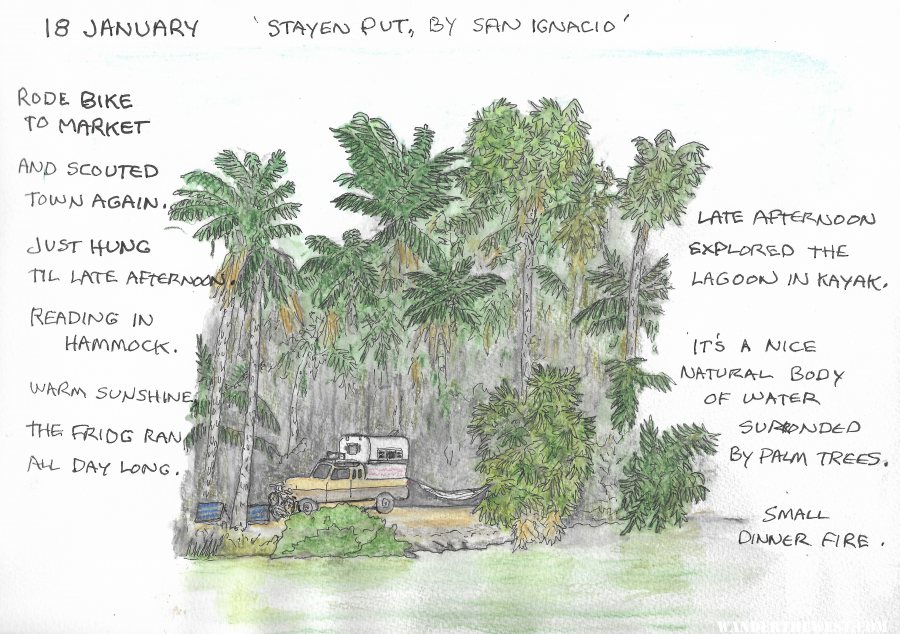 18 JANUARY 'STAYEN PUT, BY SAN IGNACIO'
RODE BIKE
TO MARKET
AND SCOUTED
TOWN AGAIN.
JUST HUNG
TIL LATE AFTERNOON.
READING IN
HAMMOCK.
WARM SUNSHINE
THE FRIDG RAN
ALL DAY LONG.
LATE AFTERNOON
EXPLORED THE
LAGOON IN KAYAK.
IT'S A NICE
NATURAL BODY
OF WATER
SURONDED
BY PALM TREES.
SMALL
DINNER FIRE.
WANDERTHEWEST.COM